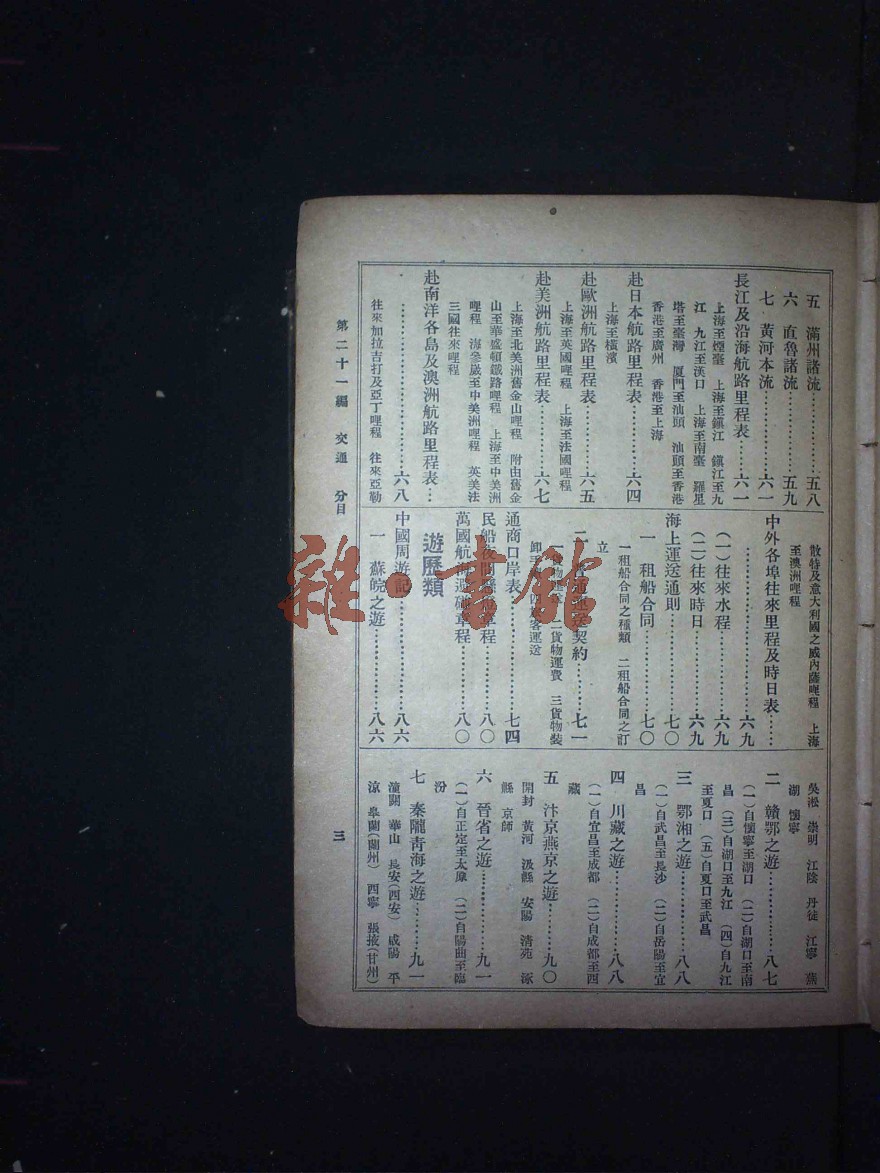 五　滿州諸流……五八
六　直魯諸流……五九
七　黃河本流……六一
長江及沿海航路里程表……六一
上海至煙臺　上海至鎮江　鎮江至九
江　九江至漢口　上海至南臺　羅星
塔至臺灣　厦門至汕頭　汕頭至香港
香港至廣州　香港至上海
赴日本航路里程表……六四
上海至橫濱
赴歐洲航路里程表……六五
上海至英國哩程　上海至法國哩程
赴美洲航路里程表……六七
上海至北美洲舊金山哩程　附由舊金
山至華盛頓鐵路哩程　上海至中美洲
哩程　海參崴至中美洲哩程　英美法
三國往來哩程
赴南洋各島及澳洲航路里程表…
……六八
往來加拉吉打及亞丁哩程　往來亞勒
散特及意大利國之威內薩哩程　上海
至澳洲哩程
中外各埠往來里程及時日表……
……六九
(一)往來水程……六九
(二)往來時日……六九
海上運送通則……七〇
一　租船合同……七〇
一租船合同之種類　二租船合同之訂
立
二　普通運送契約……七一
一貨物運送　二貨物運費　三貨物裝
卸　客運送
通商口岸表……七四
民船夜間懸燈章程……八〇
萬國航船避碰章程……八〇
遊歷類
中國周游記……八六
一　蘇皖之遊……八六
吳淞　崇明　江陰　丹徒　江寧　蕪
湖　懷寧
二　贛鄂之遊……八七
(一)自懷寧至湖口　(二)自湖口至南
昌　(三)自湖口至九江　(四)自九江
至夏口　(五)自夏口至武昌
三　鄂湘之遊……八八
(一)自武昌至長沙　(二)自岳陽至宜
昌
四　川藏之遊……八八
(一)自宜昌至成都　(二)自成都至西
藏
五　汴京燕京之遊……九〇
開封　黃河　汲縣　安陽　清苑　涿
縣　京師
六　晉省之遊……九一
(一)自正定至太原　(二)自陽曲至臨
汾
七　秦隴青海之遊……九一
潼關　華山　長安(西安)　咸陽　平
涼　皋蘭(蘭州)　西寧　張掖(甘州)
第二十一編　交通　分目
三
雜·書館